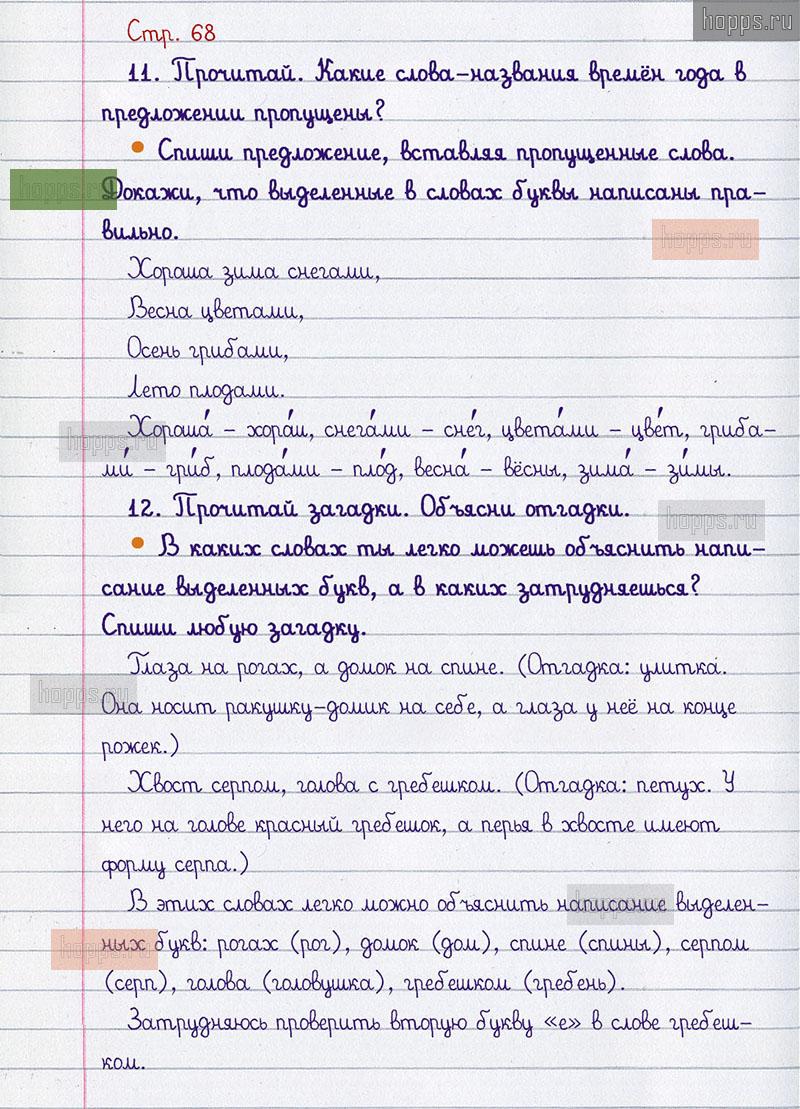 hopps.ru
Стр. 68
11. Прочитай. Какие слова-названия времён года в
предложении пропущены?
• Спиши предложение, вставляя пропущенные слова.
hopps.ru
Докажи, что выделенные в словах буквы написаны пра-
вильно.
hopps.ru
Хороша зима снегами,
Весна цветами,
Осень грибами,
Лето плодами.
Хороша́ – хоро́ш, снега́ми – сне́г, цвета́ми – цве́т, гриба-
ми́ – гри́б, плода́ми – пло́д, весна́ – вёсны, зима́ – зи́мы.
hopps.ru
12. Прочитай загадки. Объясни отгадки.
hopps.ru
• В каких словах ты легко можешь объяснить напи-
сание выделенных букв, а в каких затрудняешься?
Спиши любую загадку.
Глаза на рогах, а домок на спине. (Отгадка: улитка.
hopps.ru
Она носит ракушку-домик на себе, а глаза у неё на конце
рожек.)
Хвост серпом, голова с гребешком. (Отгадка: петух. У
него на голове красный гребешок, а перья в хвосте имеют
форму серпа.)
В этих словах легко можно объяснить написание выделен-
hopps.ru
ных букв: рогах (рог), домок (дом), спине (спины), серпом
hopps.ru
(серп), голова (головушка), гребешком (гребень).
Затрудняюсь проверить вторую букву «е» в слове гребеш-
ком.